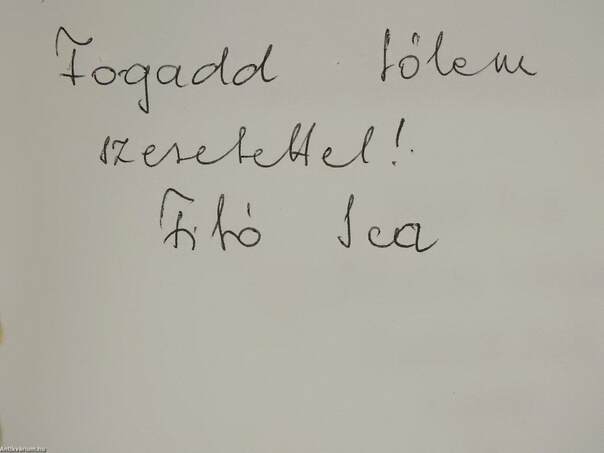 Fogadd tőlem
szeretettel!
Fitó Ica
Antikvarium.hu